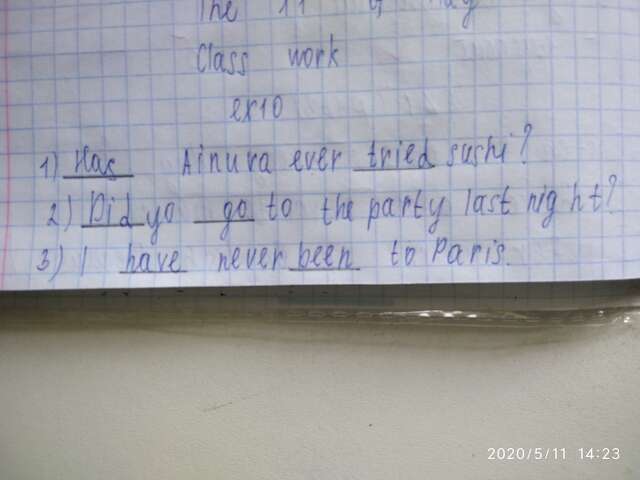 The 11 of May
Class work
ex10
1) Has Ainura ever tried sushi?
2) Did yo go to the party last night?
3) I have never been to Paris.
2020/5/11 14:23